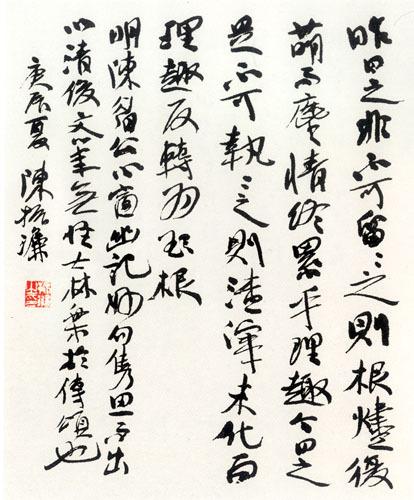 昨日之非不可留〻之則根燼復
萌而塵情終累乎理趣今日之
是不可執〻之則渣滓未化而
理趣反轉為欲根
明陳眉公小窗幽記妙句雋思而出
以清俊文筆無怪士林樂於傳頌也
庚辰夏 陳振濂